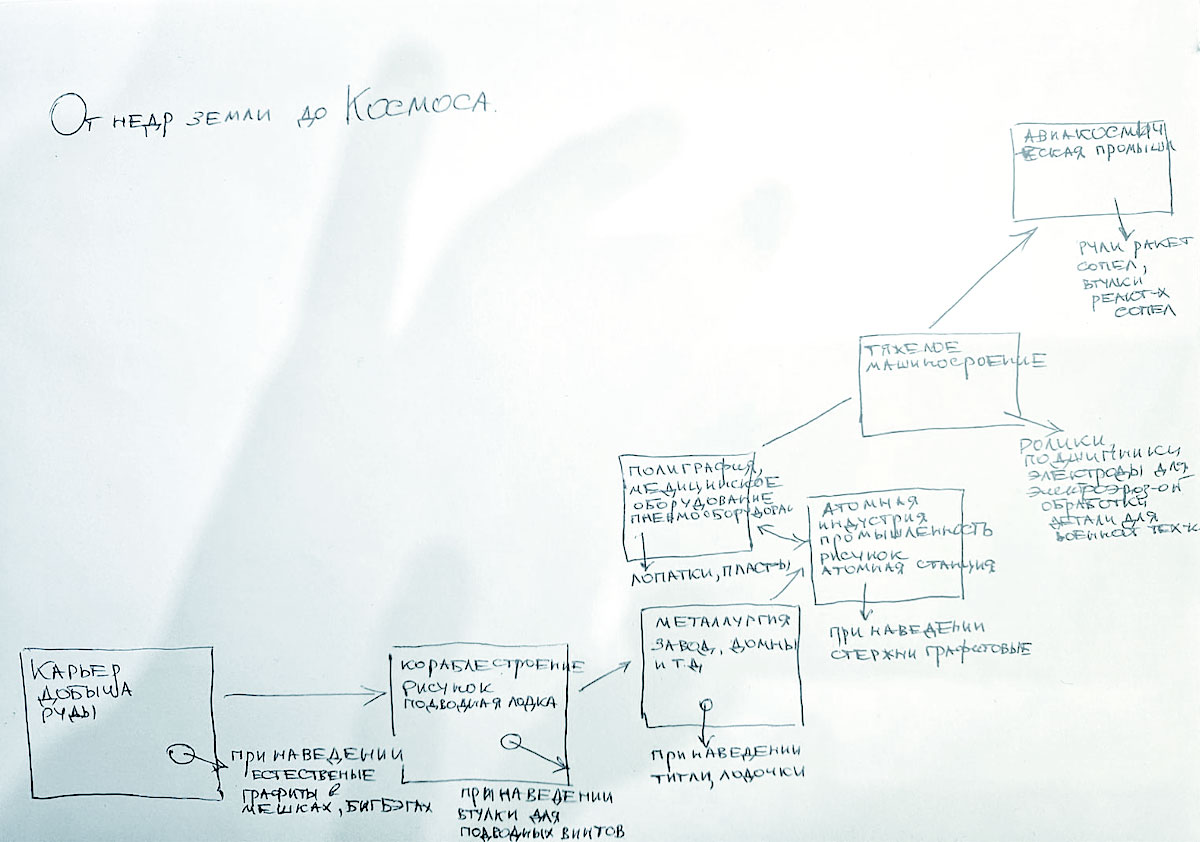 От недр земли до Космоса.
АВИАКОСМИЧ
ЕСКАЯ ПРОМЫШЛ
РУЛИ РАКЕТ
СОПЕЛ,
ВТУЛКИ
РЕАКТ-Х
СОПЕЛ
ТЯЖЕЛОЕ
МАШИНОСРОЕНИЕ
РОЛИКИ,
ПОДШИПНИКИ
ЭЛЕКТРОДЫ ДЛЯ
ЭЛЕКТРОЭРОЗ-ОЙ
ОБРАБОТКИ
ДЕТАЛИ ДЛЯ
ВОЕННОЙ ТЕХ-К
ПОЛИГРАФИЯ,
МЕДИЦИНСКОЕ
ОБОРУДОВАНИЕ
ПНЕВМООБОРУДОВАН
ЛОПАТКИ, ПЛАСТ-Ы
АТОМНАЯ
ИНДУСТРИЯ
ПРОМЫШЛЕННОСТЬ
РИСУНОК
АТОМНАЯ СТАНЦИЯ
ПРИ НАВЕДЕНИИ
СТЕРЖНИ ГРАФИТОВЫЕ
МЕТАЛЛУРГИЯ
ЗАВОД, ДОМНЫ
И Т.Д
ПРИ НАВЕДЕНИИ
ТИГЛИ, ЛОДОЧКИ
КОРАБЛЕСТРОЕНИЕ
РИСУНОК
ПОДВОДНАЯ ЛОДКА
ПРИ НАВЕДЕНИИ
ВТУЛКИ ДЛЯ
ПОДВОДНЫХ ВИНТОВ
КАРЬЕР
ДОБЫЧА
РУДЫ
ПРИ НАВЕДЕНИИ
ЕСТЕСТВЕНЫЕ
ГРАФИТЫ В
МЕШКАХ, БИГБЭГАХ